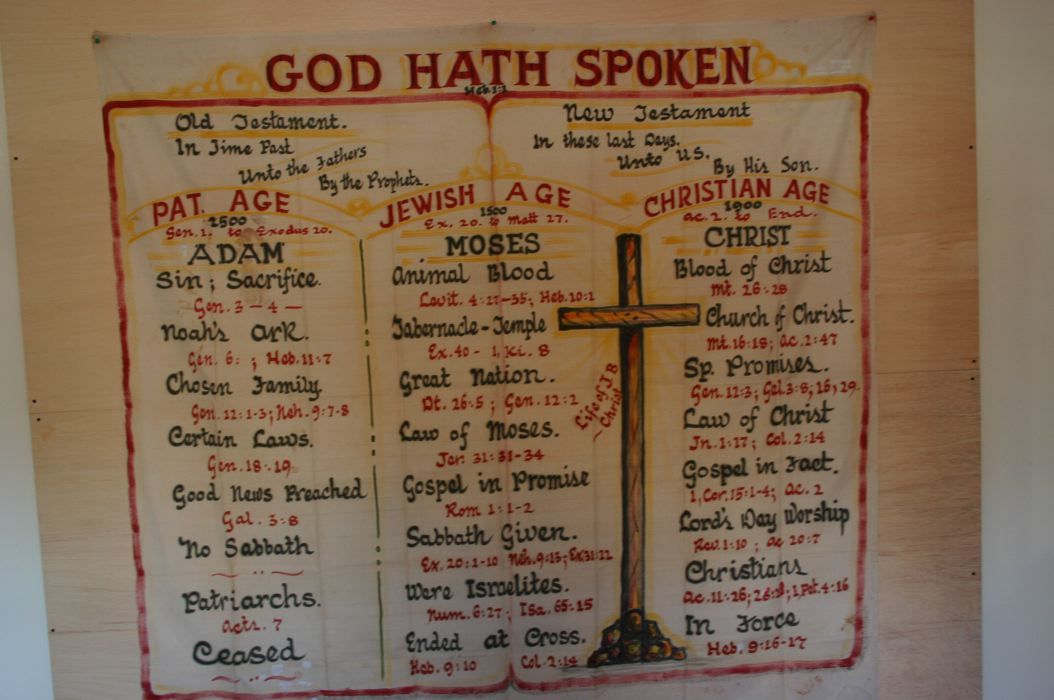 GOD HATH SPOKEN
Heb. 1:1
Old Testament.
In Time Past
Unto the Fathers
By the Prophets.
New Testament
In these last Days.
Unto US.
By His Son.
PAT. AGE
2500
Gen. 1. to Exodus 20.
ADAM
Sin; Sacrifice.
Gen. 3 - 4 -
Noah's Ark.
Gen. 6: ; Heb. 11:7
Chosen Family.
Gen. 12:1-3; Neh. 9:7-8
Certain Laws.
Gen. 18:19
Good News Preached
Gal. 3:8
No Sabbath
Patriarchs.
Acts. 7
Ceased
JEWISH AGE
1500
Ex. 20. to Matt 27.
MOSES
Animal Blood
Levit. 4:27-35; Heb. 10:1
Tabernacle-Temple
Ex. 40 - 1, Ki. 8
Great Nation.
Dt. 26:5 ; Gen. 12:2
Law of Moses.
Jer. 31:31-34
Gospel in Promise
Rom 1:1-2
Sabbath Given.
Ex. 20:1-10 Neh. 9:13;
Were Israelites.
Num. 6:27; Isa. 65:15
Ended at Cross.
Heb. 9:10 Col. 2:14
Life of J B
~ Christ
CHRISTIAN AGE
1900
Ac. 2. to End.
CHRIST
Blood of Christ
Mt. 26:28
Church of Christ.
Mt. 16:18; Ac. 2:47
Sp. Promises.
Gen. 12:3; Gal. 3:8, 16, 29.
Law of Christ
Jn. 1:17; Col. 2:14
Gospel in Fact.
1, Cor. 15:1-4; Ac. 2
Lord's Day Worship
Rev. 1:10 ; Ac 20:7
Christians
Ac. 11:26; 26:28; 1, Pet. 4:16
In Force
Heb. 9:16-17